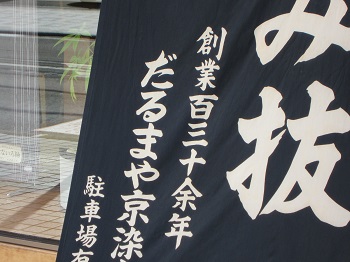 み抜
創業百三十余年
だるまや京染
駐車場有